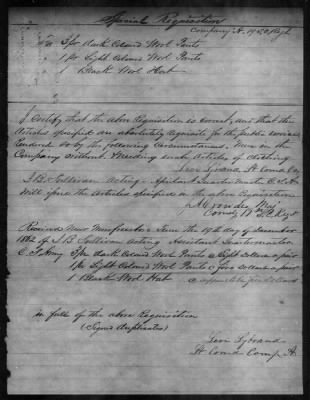 Special Requisition
Company A. 19
For 3 pr dark Colored Wool Pants
" 1 pr Light Colored Wool Pants
" 1 Black Wool Hat
I Certify that the above Requisition is Correct, and that the
Articles specified are absolutely requisite for the public service
rendered so by the following circumstances. Men in the
Company without. Needing such Articles of Clothing
Levi Lt Comd Co
J. B. Sullivan Acting Assistant Quartermaster C.S.A.
Will issue the Articles specified in the above Requisition
Maj
Comdg 19th Regt
Received Near Murfreesboro Tenn the 19th day of December
1862 of J B Sullivan Acting Assistant Quartermaster
C. S. Army 3 pr dark Colored Wool Pants @ Eight dollars a pair
1 pr Light Colored Wool Pants @ five dollars a pair
1 Black Wool Hat @ dollars
in full of the above Requisition
(Signed Duplicates)
Levi
Lt Comd Comp A.